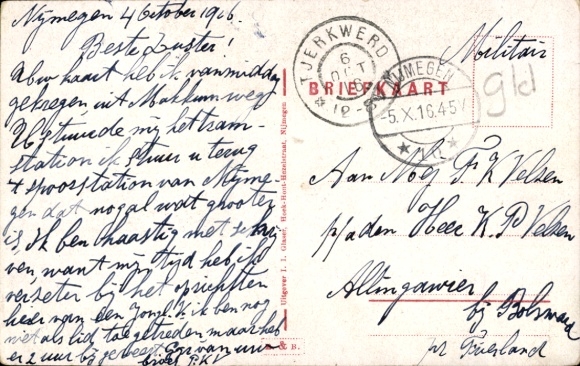 Nijmegen 4 October 1916.
Beste Zuster!
Uw kaart heb ik van middag
gekregen uit Makkum weg
U stuurde mij het tram-
station ik stuur u terug
't spoorstation van Nijme-
gen dat nog al wat grooter
is Ik ben haastig met schrij
ven, want mijn tijd heb ik
verzeten bij het oprichten
van een ik ben nog
niet als lid toegetreden maar heb
er 2 uur bij geweest Groeten van uw
broer P.K.V
Uitgever I. I. Glaser, Hoek-Hout-Hezelstraat, Nijmegen
& B.
TJERKWERD
6
OCT
BRIEFKAART
NIJMEGEN
5.X.16.4.5V
Militair
gld
Aan Mej F. K Velsen
p/aden Heer K. P Velsen
Allingawier
bij Bolsward
pr Friesland